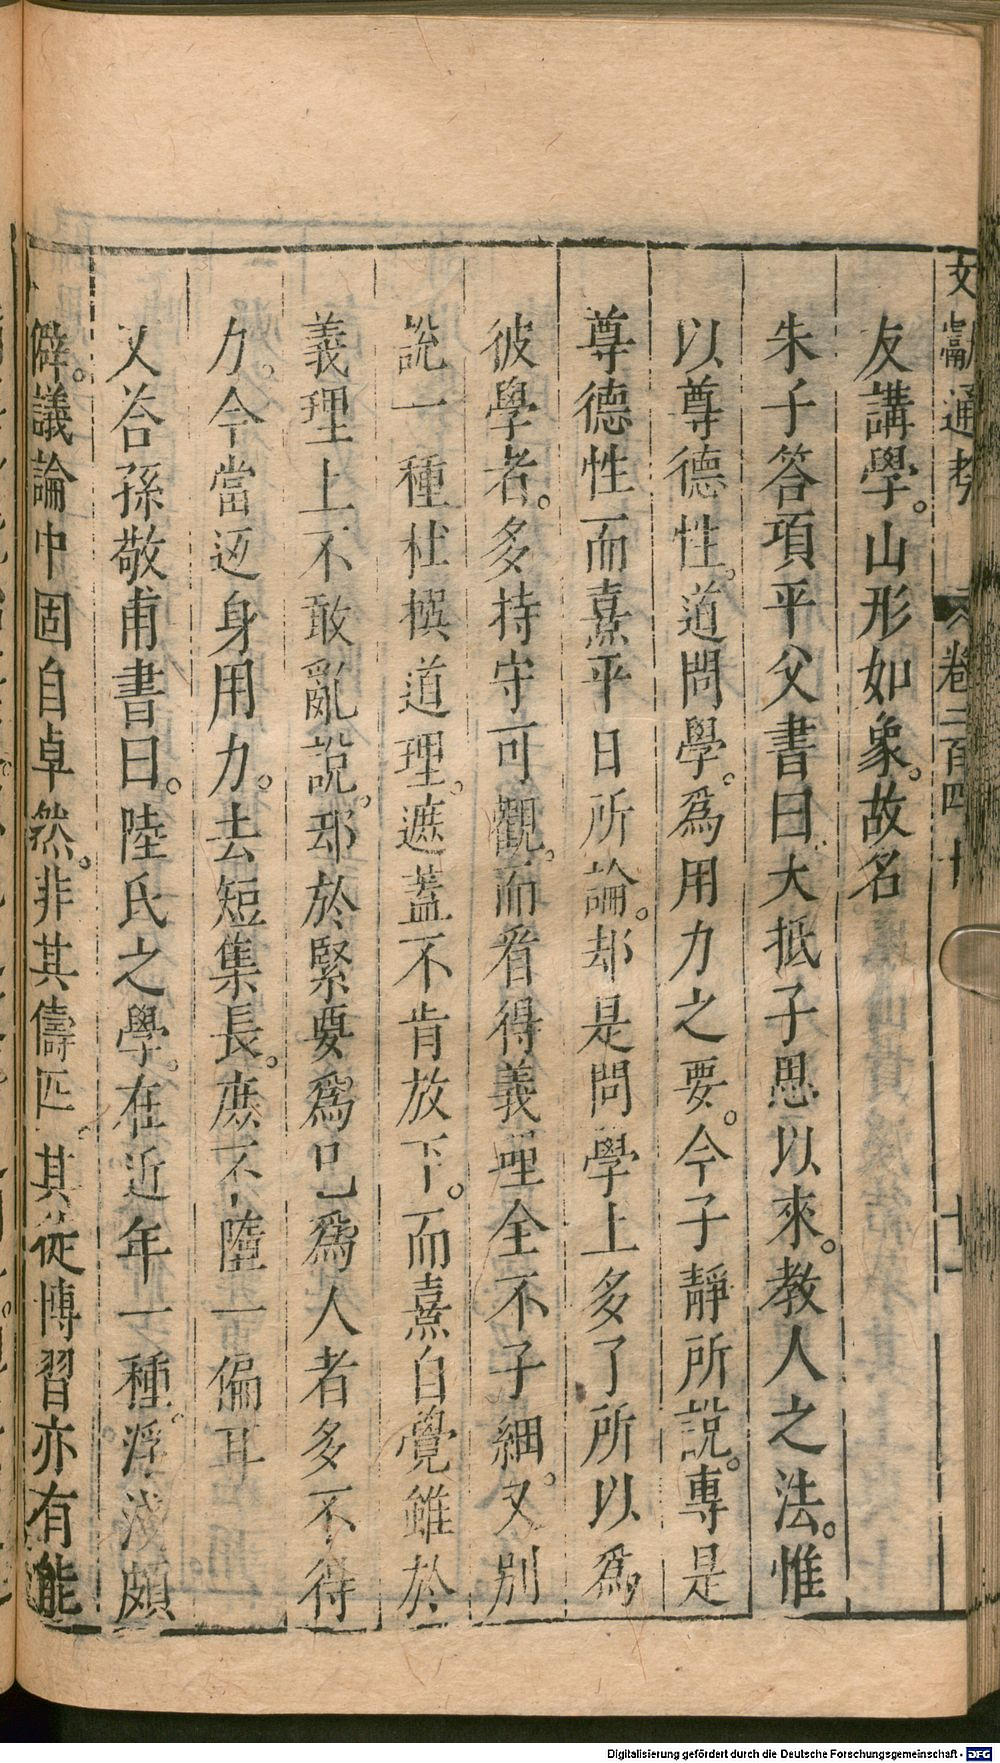 文獻通考 卷二百四十 十一
友講學。山形如象。故名
朱子答項平父書曰大抵子思以來。教人之法。惟
以尊德性。道問學。爲用力之要。今子靜所說。專是
尊德性而熹平日所論。却是問學上多了所以爲
彼學者。多持守可觀。而看得義理全不子細。又別
說一種杜撰道理。遮蓋不肯放下。而熹自覺雖於
義理上不敢亂說。却於緊要爲己爲人者多不得
力。今當返身用力。去短集長。庶不墮一偏耳
又荅孫敬甫書曰。陸氏之學。在近年一種。浮淺頗
僻。議論中固自卓然。非其儔匹。其從博習亦有能
Digitalisierung gefördert durch die Deutsche Forschungsgemeinschaft - DFG